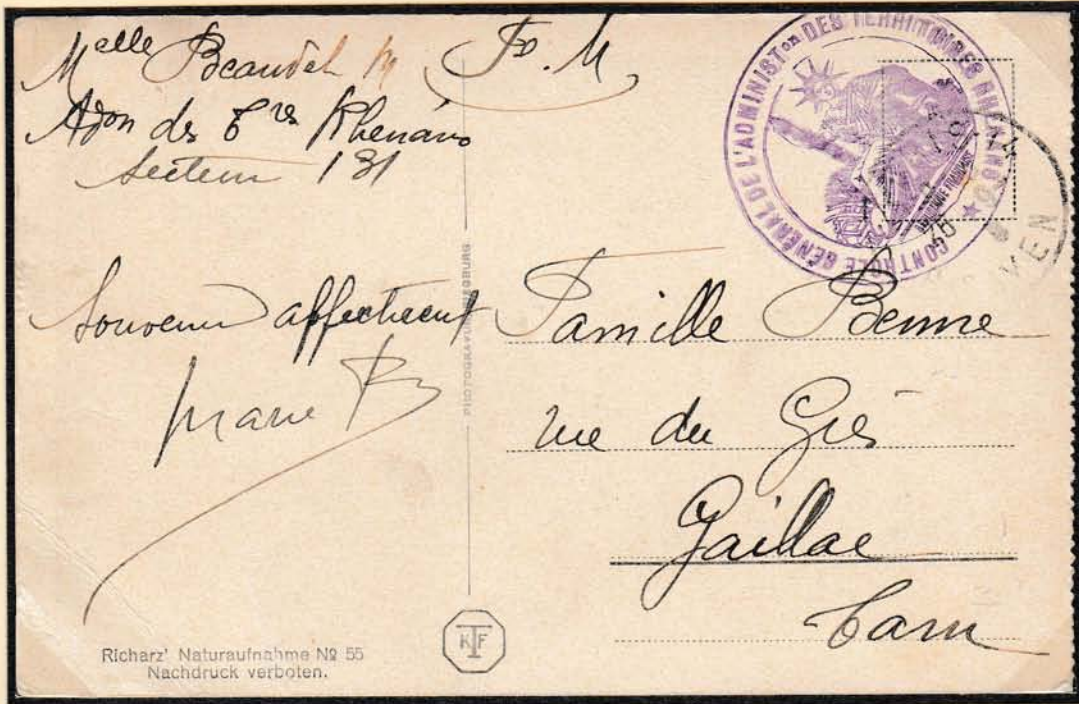 Melle Beaudet M
Adon des Tres Rhénans
Secteur 131
F.M
CONTROLE GÉNÉRAL DE L'ADMINISTon DES TERRITOIRES RHÉNANS
Souvenir affectueux
Marie B
Famille Benne
rue du Grés
Gaillac
Tarn
Richarz' Naturaufnahme № 55
Nachdruck verboten.
KTF